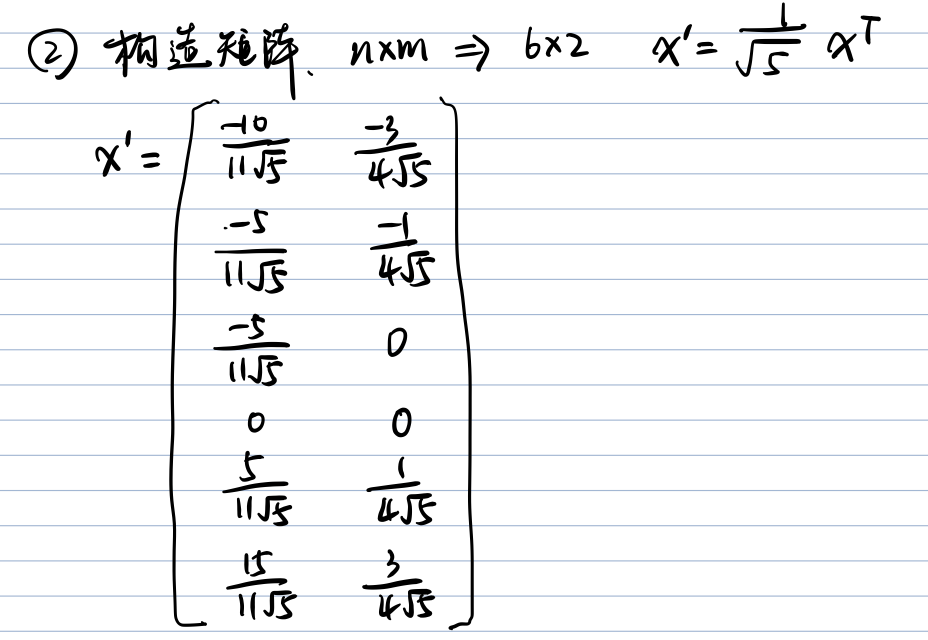 ② 构造矩阵. n×m ⇒ 6×2 x' = \frac{1}{\sqrt{5}} x^T
x' = [ \frac{-10}{11\sqrt{5}} \frac{-3}{4\sqrt{5}}
\frac{-5}{11\sqrt{5}} \frac{-1}{4\sqrt{5}}
\frac{-5}{11\sqrt{5}} 0
0 0
\frac{5}{11\sqrt{5}} \frac{1}{4\sqrt{5}}
\frac{15}{11\sqrt{5}} \frac{3}{4\sqrt{5}} ]